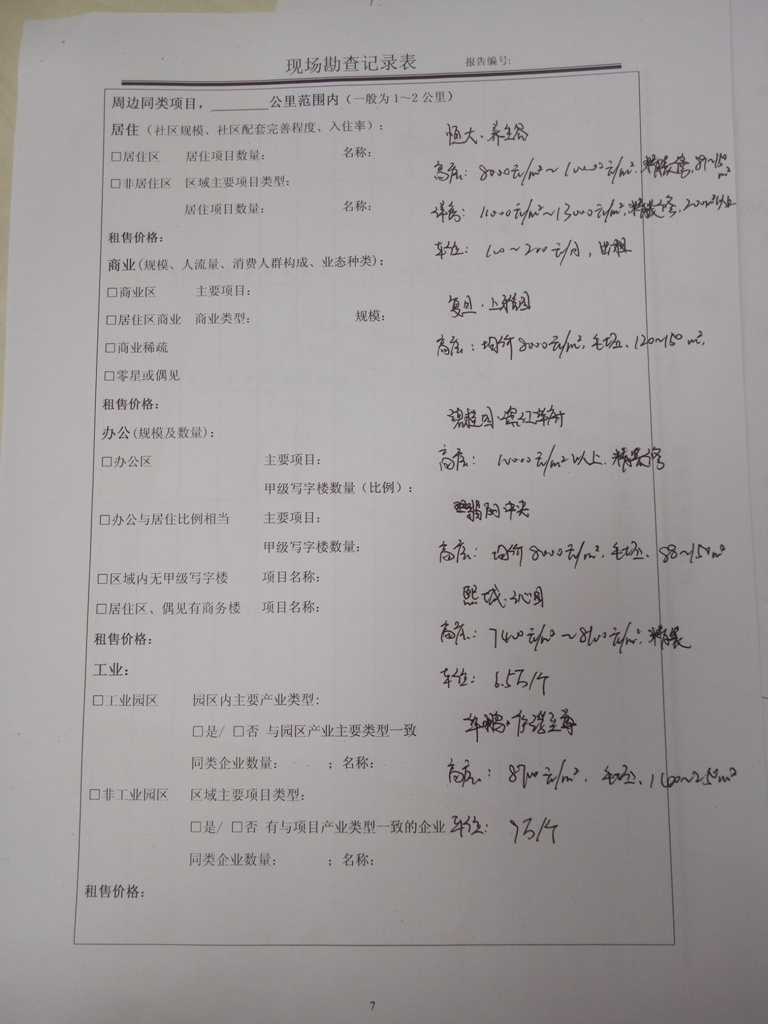 现场勘查记录表 报告编号:
周边同类项目，________公里范围内（一般为1～2公里）
居住（社区规模、社区配套完善程度、入住率）： 恒大·养生谷
□居住区 居住项目数量： 名称：
高层：8000元/m²～10000元/m²，精装修，89～150m²
□非居住区 区域主要项目类型：
居住项目数量： 名称：
洋房：11000元/m²～13000元/m²，精装修，200m²以上
租售价格：
车位：100～200元/月，出租
商业(规模、人流量、消费人群构成、业态种类)：
□商业区 主要项目：
复旦·上雅园
□居住区商业 商业类型： 规模：
□商业稀疏
高层：均价8000元/m²，毛坯、120～150m²，
□零星或偶见
租售价格：
碧桂园
办公(规模及数量)：
□办公区 主要项目：
高层：10000元/m²以上，精装修
甲级写字楼数量（比例）：
□办公与居住比例相当 主要项目：
中央
甲级写字楼数量：
高层：均价8000元/m²，毛坯、88～150m²
□区域内无甲级写字楼 项目名称：
熙城·沁园
□居住区、偶见有商务楼 项目名称：
租售价格：
高层：7400元/m²～8100元/m²，精装
工业：
车位：6.5万/个
□工业园区 园区内主要产业类型:
□是/ □否 与园区产业主要类型一致
华鹏·
同类企业数量： ；名称：
高层：8700元/m²，毛坯、160～250m²
□非工业园区 区域主要项目类型：
□是/ □否 有与项目产业类型一致的企业 车位：9万/个
同类企业数量： ；名称：
租售价格：
7